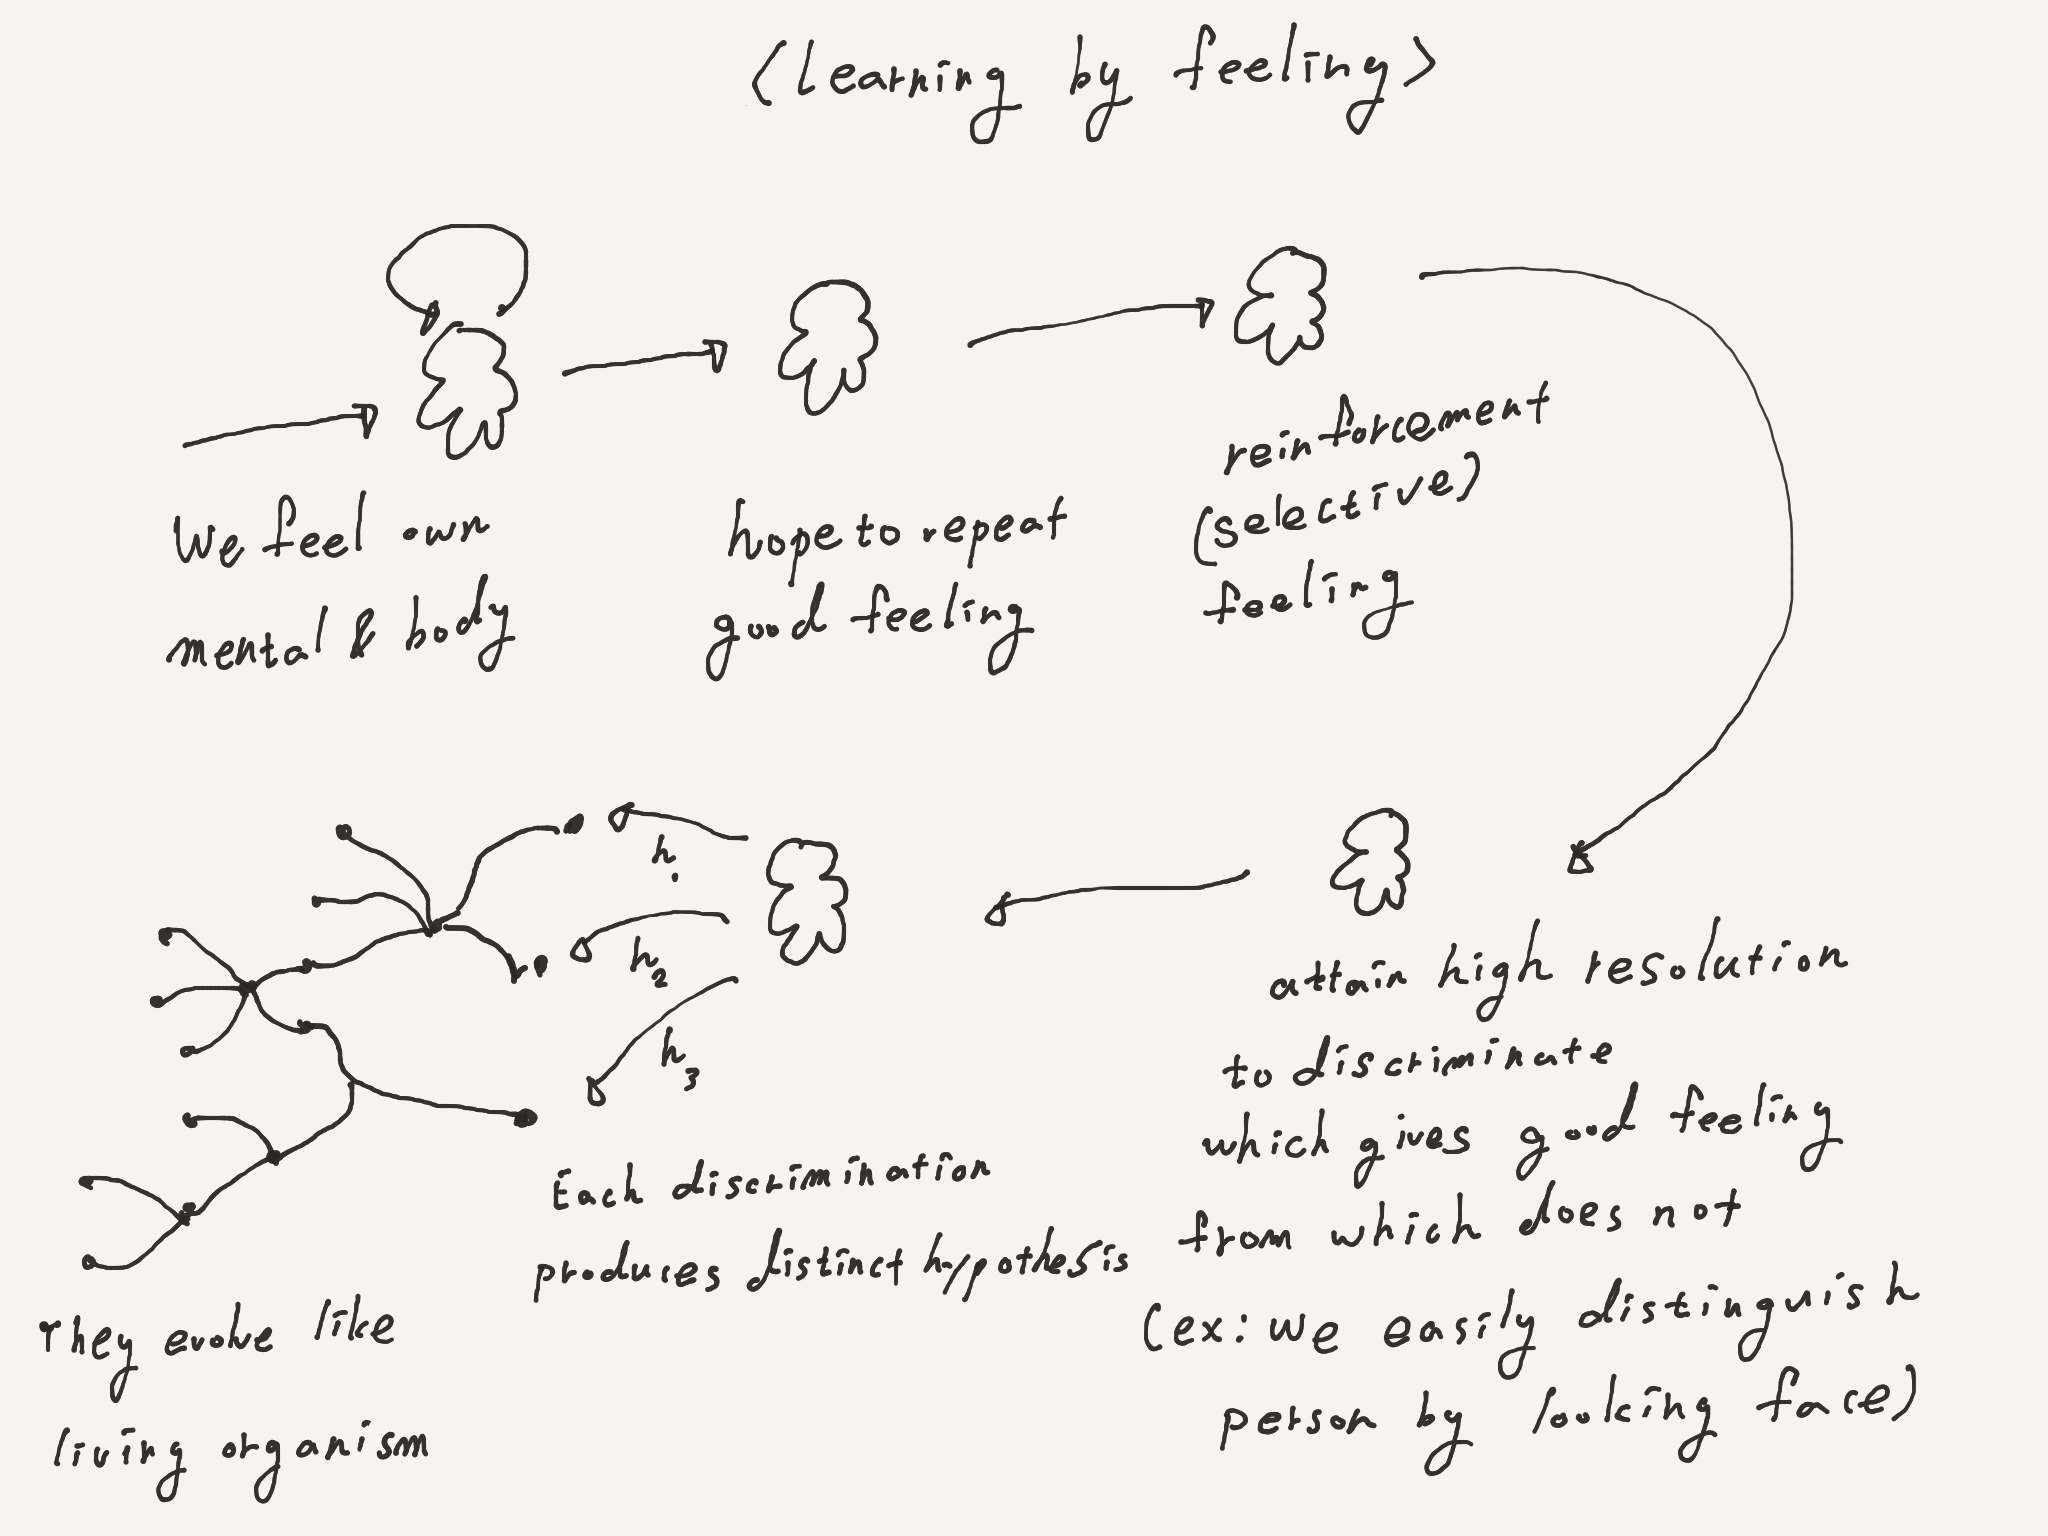 <learning by feeling>
We feel own
mental & body
hope to repeat
good feeling
reinforcement
(selective)
feeling
attain high resolution
to discriminate
which gives good feeling
from which does not
(ex: we easily distinguish
person by looking face)
h1
h2
h3
Each discrimination
produces distinct hypothesis
They evolve like
living organism